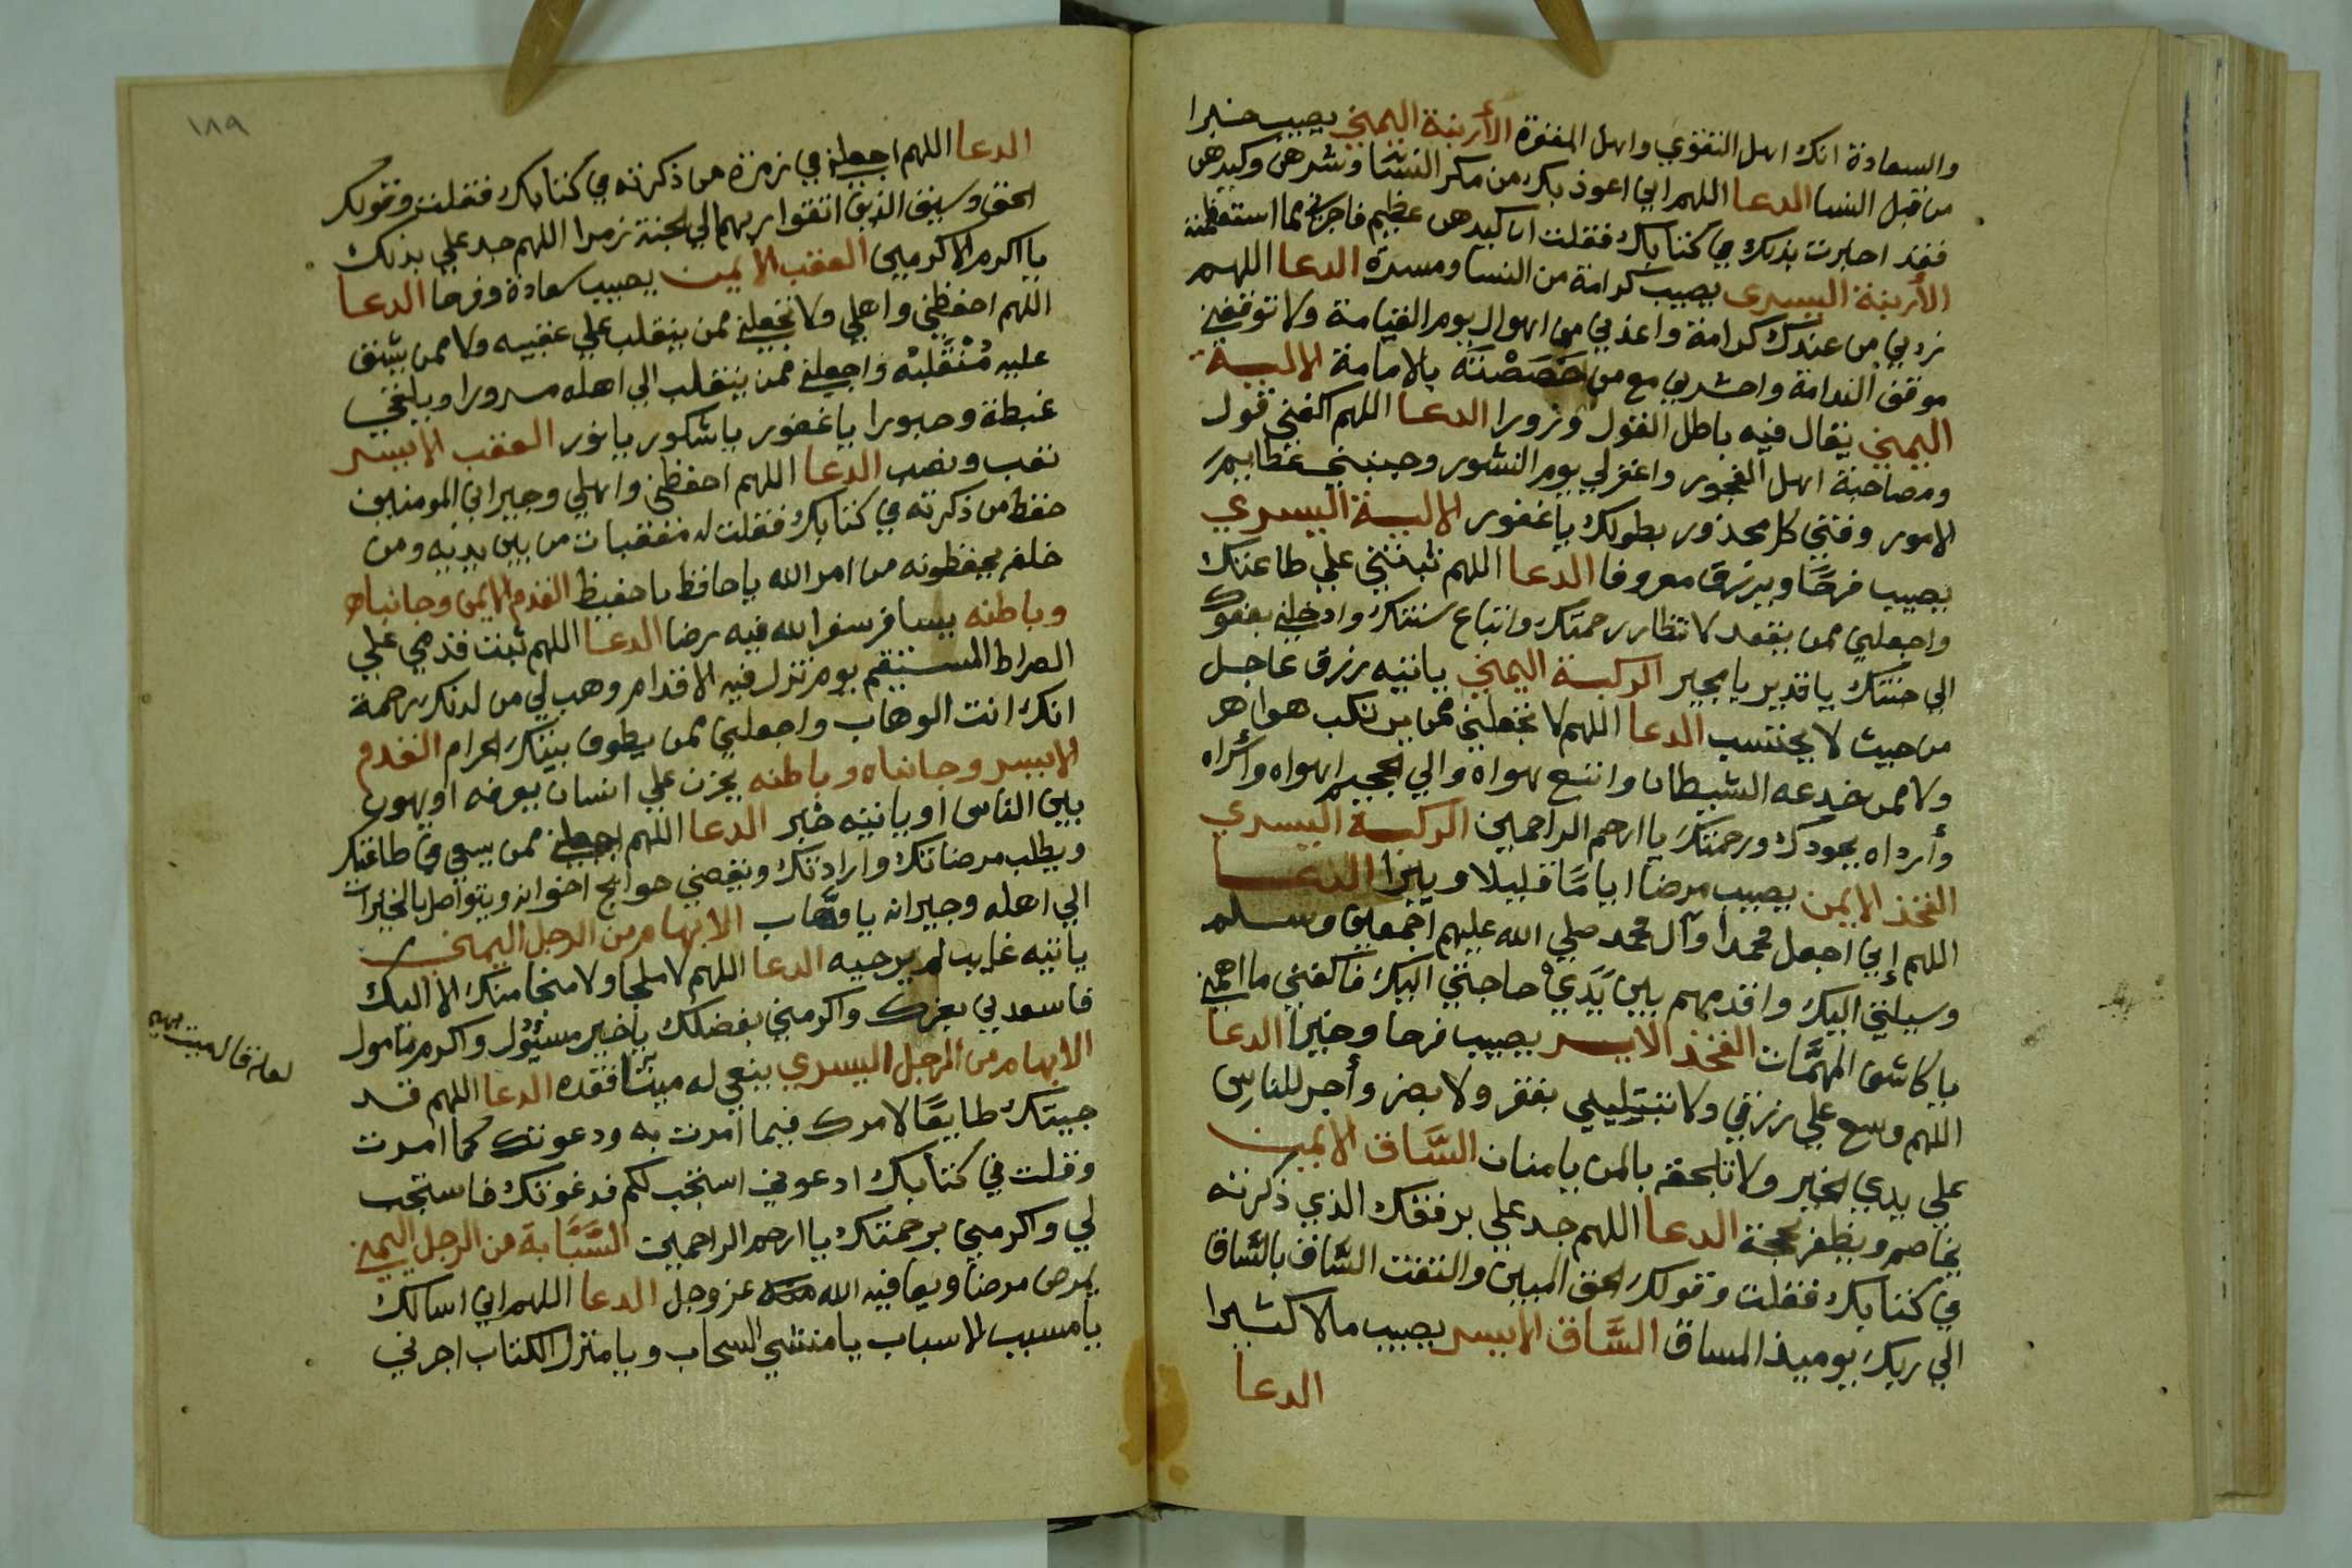 والسعادة انك اهل التقوي واهل المغفرة الأربنة اليمني يصيب خيرا
من قبل النسا الدعا اللهم اني اعوذ بك من مكر النسا وشرهن وكيدهن
فقد اخبرت بذلك في كتابك فقلت ان كيدهن عظيم فاجرني مما استعظمته
الأربنة اليسرى يصيب كرامة من النسا ومسرة الدعا اللهم
زدني من عندك كرامة واعذني من اهوال يوم القيامة ولا توقفني
موقف الندامة واحشرني مع من خصصْتَه بالامامة الالية
اليمني يقال فيه باطل القول وزورا الدعا اللهم اكفني قول
ومصاحبة اهل الفجور واغفر لي يوم النشور وجنبني عظايم
الامور وقني كل محذور بطولك يا غفور الالية اليسري
يصيب فرحًا ويرزق معروفا الدعا اللهم ثبتني علي طاعتك
واجعلني ممن يقعد لانتظار رحمتك واتباع سنتك وادخلني بعفوك
الي جنتك يا قدير يا مجير الركبة اليمني ياتيه رزق عاجل
من حيث لا يحتسب الدعا اللهم لا تجعلني ممن يرتكب هواهم
ولا ممن خدعه الشيطان واتبع هواه والي الجحيم اهواه وأراه
وأرداه بجودك ورحمتك يا ارحم الراحمين الركبة اليسري
الفخذ الايمن يصيب مرضا اياما قليلا ويبرا الدعا
اللهم إني اجعل محمدا وآل محمد صلي الله عليهم اجمعين وسلم
وسيلتي اليك واقدمهم بين يَدَيْ حاجتي اليك فاكفني ما اهمني
يا كاشف المهمَّات الفخذ الايسر يصيب فرحا وخيرا الدعا
اللهم وسع علي رزقي ولا تبتليني بفقر ولا بضر وأجر للناس
علي يدي الخير ولا تلحقه بالمن يا منان السَّاق الايمن
يخاصم ويظفر بحجة الدعا اللهم جد علي برفقك الذي ذكرته
في كتابك فقلت وقولك الحق المبين والتفت السَّاق بالسَّاق
الي ربك يوميذ المساق السَّاق الايسر يصيب مالا كثيرا
الدعا
١٨٩
الدعا اللهم اجعلني في زمرة من ذكرته في كتابك فقلت وقولك
الحق وسيق الذين اتقوا ربهم الي الجنة زمرا اللهم جد علي بذلك
يا اكرم الاكرمين العقب الايمن يصيب سعادة وفرحا الدعا
اللهم احفظني واهلي ولا تجعلني ممن ينقلب علي عقبيه ولا ممن يشق
عليه مُنْقَلَبُه واجعلني ممن ينقلب الي اهله مسرورا ويلقي
غبطة وحبورا يا غفور يا شكور يا نور العقب الايسر
تعب ونصب الدعا اللهم احفظني واهلي وجيراني المومنين
حفظ من ذكرته في كتابك فقلت له معقبات من بين يديه ومن
خلفه يحفظونه من امر الله يا حافظ يا حفيظ القدم الايمن وجانباه
وباطنه يسافر سفرا لله فيه رضا الدعا اللهم ثبت قدمي علي
الصراط المستقيم يوم تزل فيه الاقدام وهب لي من لدنك رحمة
انك انت الوهاب واجعلني ممن يطوف ببيتك الحرام القدم
الايسر وجانباه وباطنه يحزن علي انسان يعرفه او يهون
بين الناس او ياتيه خبر الدعا اللهم اجعلني ممن يسعي في طاعتك
ويطلب مرضاتك وارادتك ويقضي حوايج اخوانه ويتواصل بالخيرات
الي اهله وجيرانه يا وهَّاب الابهام من الرجل اليمني
ياتيه غايب لم يرجيه الدعا اللهم لا ملجا ولا منجا منك الا اليك
فاسعدني بعزك واكرمني بفضلك يا خير مسئول واكرم مامول
الابهام من الرجل اليسري ينعي له ميتا فقده الدعا اللهم قد
جيتك طايعًا لامرك فيما امرت به ودعوتك كما امرت
وقلت في كتابك ادعوني استجب لكم فدعوتك فاستجب
لي واكرمني برحمتك يا ارحم الراحمين السَّبَّابة من الرجل اليمني
يمرض مرضا ويعافيه الله عز وجل الدعا اللهم اني اسالك
يا مسبب الاسباب يا منشي السحاب ويا منزل الكتاب اجرني
لعله قال ميت